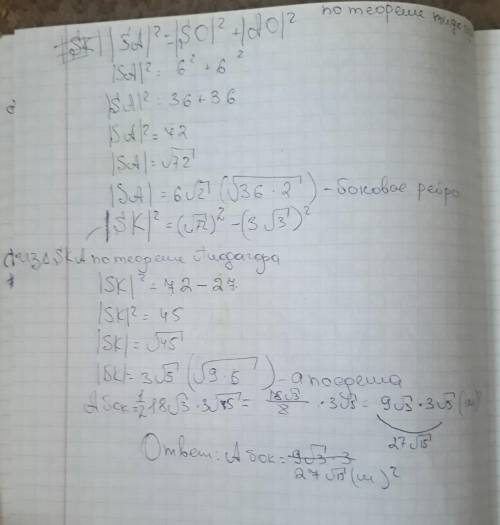 |SA|² = |SO|² + |AO|² по теореме
|SA|² = 6² + 6²
|SA|² = 36 + 36
|SA|² = 72
|SA| = √72
|SA| = 6√2 (√36·2) - боковое ребро
|SK|² = (√72)² - (3√3)²
из △SKA по теореме Пифагора
|SK|² = 72 - 27
|SK|² = 45
|SK| = √45
|SK| = 3√5 (√9·5) - апофема
Aбок = 1/2 18√3 · 3√5 = 18√3/2 · 3√5 = 9√3 · 3√5 (м)
27√15
Ответ: Aбок = 9√3 · 3
27√15 (м)²